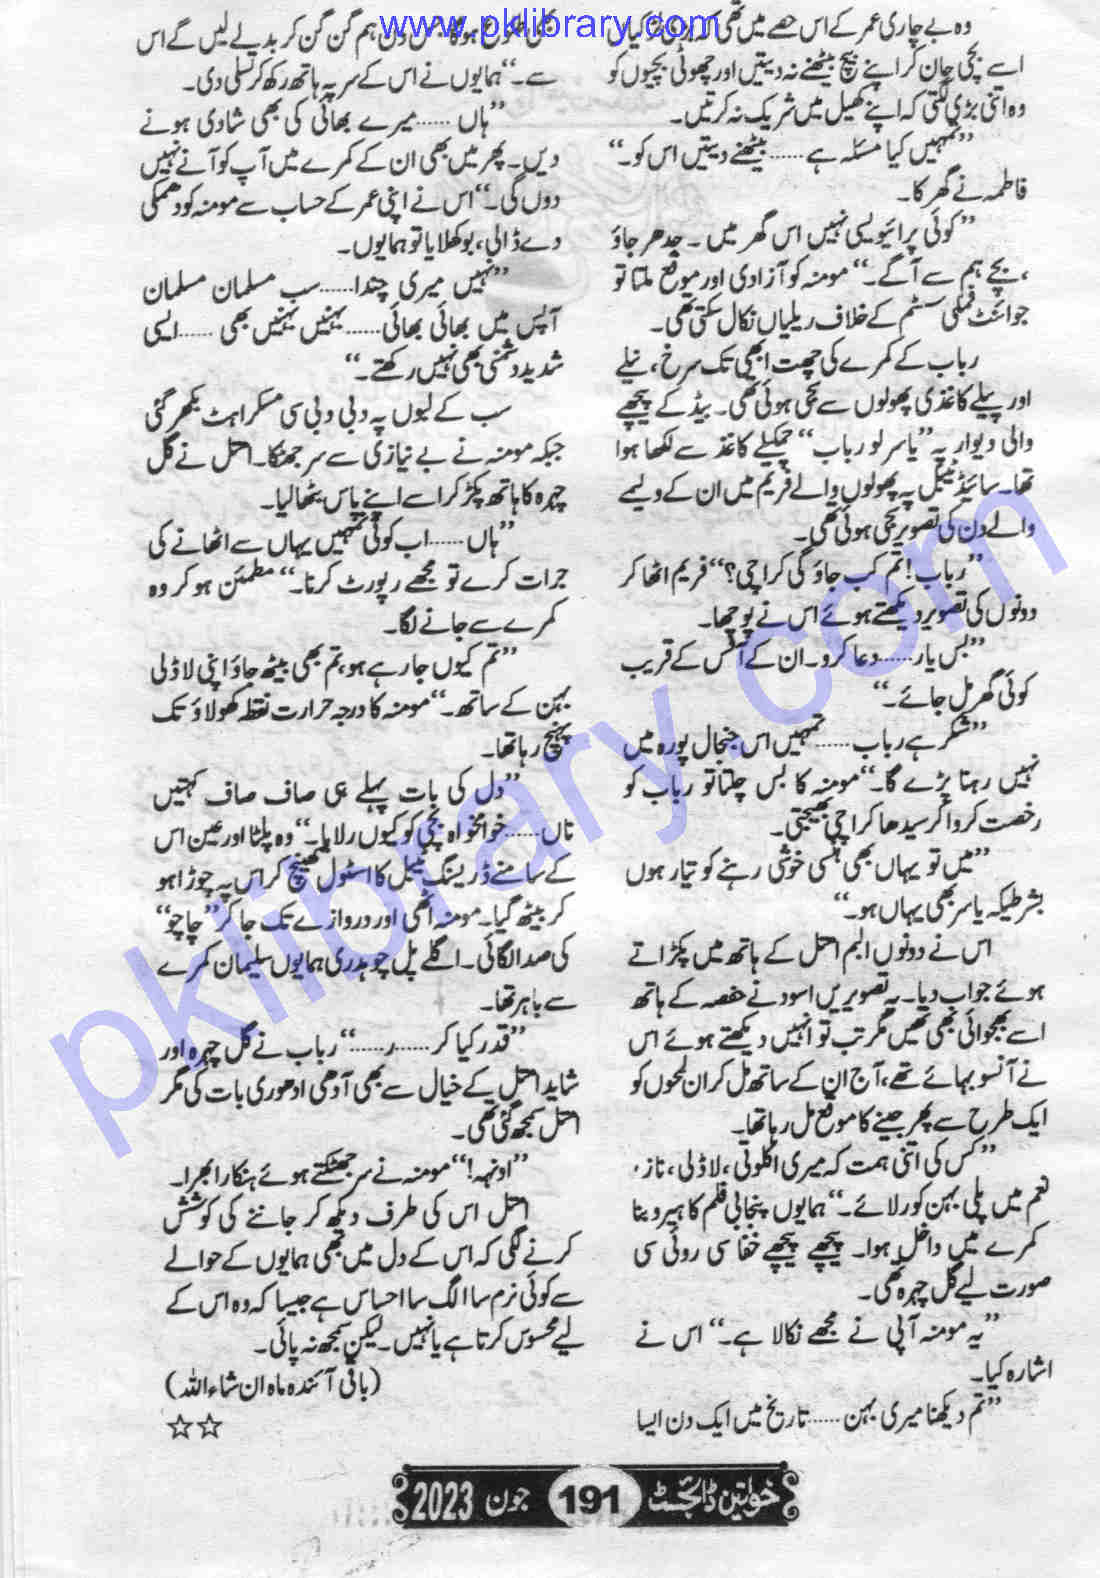 www.pklibrary.com
وہ بے چاری عمر کے اس حصے میں تھی کہ بڑی لڑکیاں
اسے بچی جان کر اپنے بیچ بیٹھنے نہ دیتیں اور چھوٹی بچیوں کو
وہ اتنی بڑی لگتی کہ اپنے کھیل میں شریک نہ کرتیں۔
”تمہیں کیا مسئلہ ہے...... بیٹھنے دیتیں اس کو۔“
فاطمہ نے گھرکا۔
”کوئی پرائیویسی نہیں اس گھر میں۔ جدھر جاؤ
، بچے ہم سے آگے۔“ مومنہ کو آزادی اور موقع ملتا تو
جوائنٹ فیملی سسٹم کے خلاف ریلیاں نکال سکتی تھی۔
رباب کے کمرے کی چھت ابھی تک سرخ، نیلے
اور پیلے کاغذی پھولوں سے سجی ہوئی تھی۔ بیڈ کے پیچھے
والی دیوار پہ ”یاسر لو رباب“ چمکیلے کاغذ سے لکھا ہوا
تھا۔ سائیڈ ٹیبل پہ پھولوں والے فریم میں ان کے ولیمے
والے دن کی تصویر سجی ہوئی تھی۔
”رباب! تم کب جاؤ گی کراچی؟“ فریم اٹھا کر
دونوں کی تصویر دیکھتے ہوئے اس نے پوچھا۔
”بس یار...... دعا کرو۔ ان کے آفس کے قریب
کوئی گھر مل جائے۔“
”شکر ہے رباب...... تمہیں اس جنجال پورہ میں
نہیں رہنا پڑے گا۔“ مومنہ کا بس چلتا تو رباب کو
رخصت کروا کر سیدھا کراچی بھیجتی۔
”میں تو یہاں بھی ہنسی خوشی رہنے کو تیار ہوں
بشرطیکہ یاسر بھی یہاں ہو۔“
اس نے دونوں البم امتل کے ہاتھ میں پکڑاتے
ہوئے جواب دیا۔ یہ تصویریں اسود نے حفصہ کے ہاتھ
اسے بھجوائی بھی تھیں مگر تب تو انہیں دیکھتے ہوئے اس
نے آنسو بہائے تھے، آج ان کے ساتھ مل کر ان لمحوں کو
ایک طرح سے پھر جینے کا موقع مل رہا تھا۔
”کس کی اتنی ہمت کہ میری اکلوتی، لاڈلی، ناز
نعم میں پلی بہن کو رلائے۔“ ہمایوں پنجابی فلم کا ہیرو بنا
کمرے میں داخل ہوا۔ پیچھے پیچھے خفا سی روئی سی
صورت لیے گل چہرہ تھی۔
”یہ مومنہ آپی نے مجھے نکالا ہے۔“ اس نے
اشارہ کیا۔
”تم دیکھنا میری بہن...... تاریخ میں ایک دن ایسا
بھی طلوع ہوگا جس دن ہم گن گن کر بدلے لیں گے اس
سے۔“ ہمایوں نے اس کے سر پہ ہاتھ رکھ کر تسلی دی۔
”ہاں...... میرے بھائی کی بھی شادی ہونے
دیں۔ پھر میں بھی ان کے کمرے میں آپ کو آنے نہیں
دوں گی۔“ اس نے اپنی عمر کے حساب سے مومنہ کو دھمکی
دے ڈالی، بوکھلایا تو ہمایوں۔
”نہیں میری چندا...... سب مسلمان مسلمان
آپس میں بھائی بھائی...... بہنیں بہنیں بھی...... ایسی
شدید دشمنی بھی نہیں رکھتے۔“
سب کے لبوں پہ دبی دبی سی مسکراہٹ بکھر گئی
جبکہ مومنہ نے بے نیازی سے سر جھٹکا۔ امتل نے گل
چہرہ کا ہاتھ پکڑ کر اسے اپنے پاس بٹھا لیا۔
”ہاں...... اب کوئی تمہیں یہاں سے اٹھانے کی
جرات کرے تو مجھے رپورٹ کرنا۔“ مطمئن ہو کر وہ
کمرے سے جانے لگا۔
”تم کیوں جا رہے ہو، تم بھی بیٹھ جاؤ اپنی لاڈلی
بہن کے ساتھ۔“ مومنہ کا درجہ حرارت نقطہ کھولاؤ تک
پہنچ رہا تھا۔
”دل کی بات پہلے ہی صاف صاف کہتیں
ناں...... خوامخواہ بچی کو کیوں رلایا۔“ وہ پلٹا اور عین اس
کے سامنے ڈریسنگ ٹیبل کا اسٹول کھینچ کر اس پہ چوڑا ہو
کر بیٹھ گیا۔ مومنہ اٹھی اور دروازے تک جا کر ”چاچو“
کی صدا لگائی۔ اگلے پل چوہدری ہمایوں سلیمان کمرے
سے باہر تھا۔
”قدر کیا کر......ر......“ رباب نے گل چہرہ اور
شاید امتل کے خیال سے بھی آدھی ادھوری بات کی مگر
امتل سمجھ گئی تھی۔
”اونہہ!“ مومنہ نے سر جھٹکتے ہوئے ہنکارا بھرا۔
امتل اس کی طرف دیکھ کر جاننے کی کوشش
کرنے لگی کہ اس کے دل میں بھی ہمایوں کے حوالے
سے کوئی نرم سا الگ سا احساس ہے جیسا کہ وہ اس کے
لیے محسوس کرتا ہے یا نہیں۔ لیکن سمجھ نہ پائی۔
(باقی آئندہ ماہ ان شاء اللہ)
☆☆
خواتین ڈائجسٹ 191 جون 2023
pklibrary.com